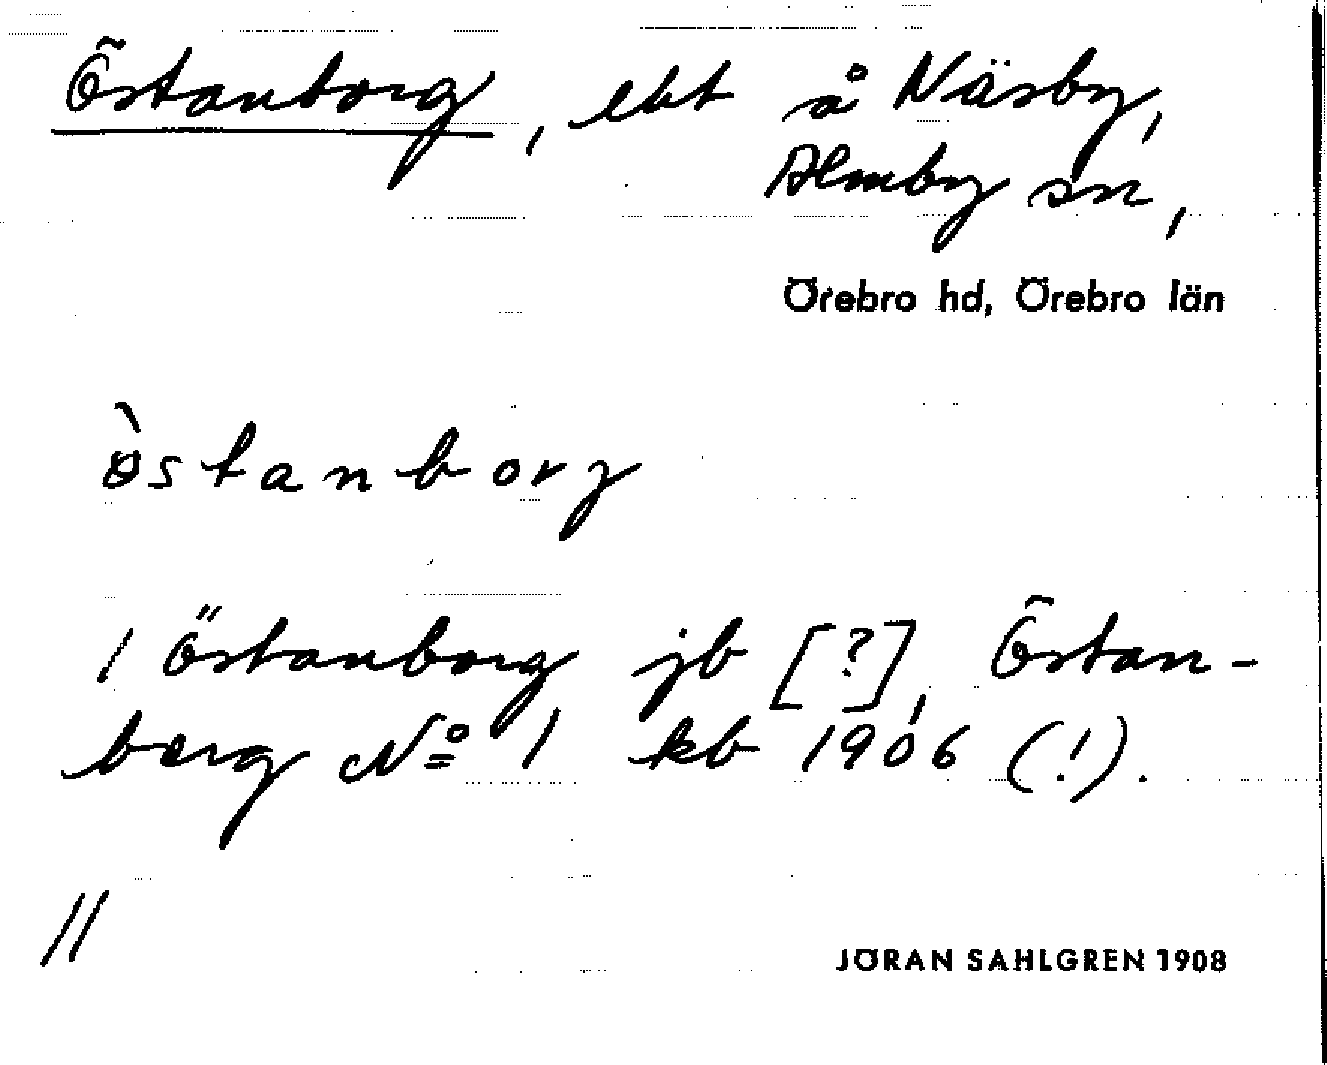 Östanborg, ebt å Näsby,
Almby sn,
Örebro hd, Örebro län
ὸstanborg
1 Östanborg jb [?], Östan-
berg No 1 kb 1906 (!).
//
JÖRAN SAHLGREN 1908